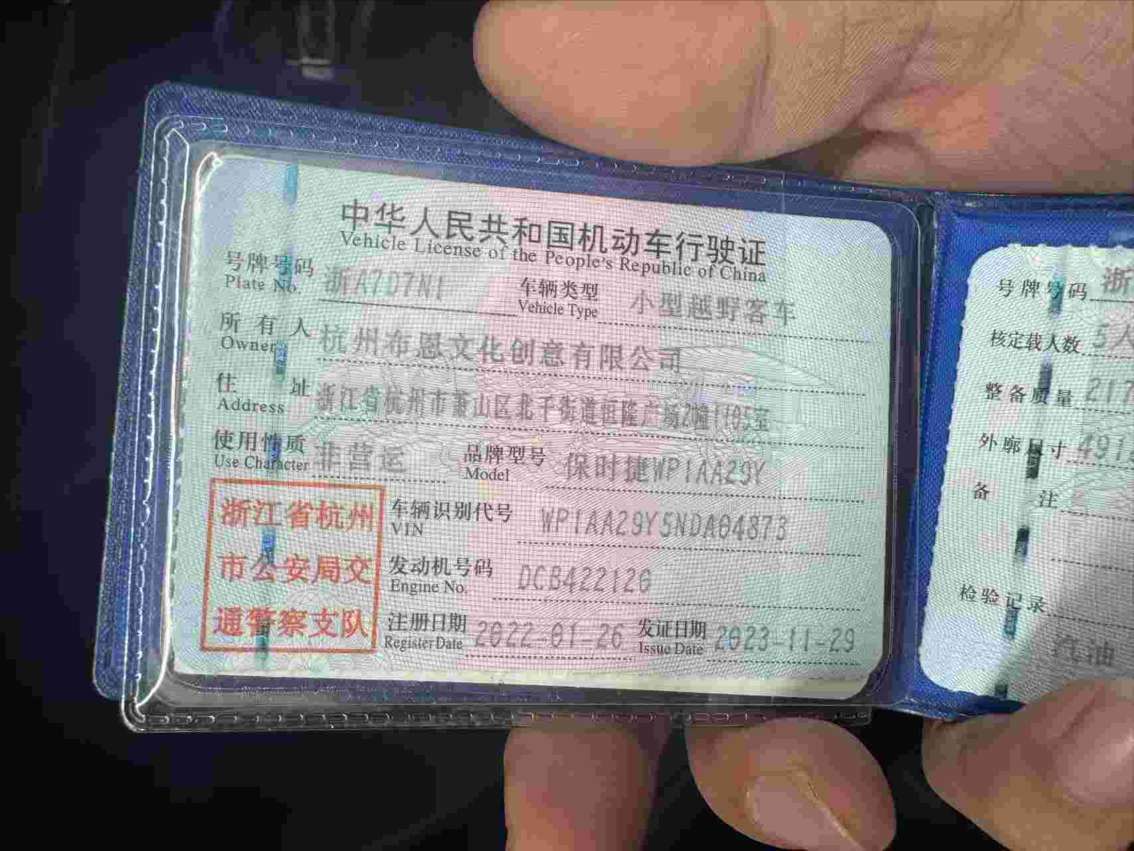 中华人民共和国机动车行驶证
Vehicle License of the People's Republic of China
号牌号码 浙A7D7N1 车辆类型 小型越野客车
Plate No. Vehicle Type
所有人 杭州布恩文化创意有限公司
Owner
住址 浙江省杭州市萧山区北干街道恒隆广场2幢1105室
Address
使用性质 非营运 品牌型号 保时捷WP1AA29Y
Use Character Model
浙江省杭州
市公安局交
通警察支队
车辆识别代号 WP1AA29Y5NDA04873
VIN
发动机号码 DCB422126
Engine No.
注册日期 2022-01-26 发证日期 2023-11-29
Register Date Issue Date
号牌号码 浙
核定载人数 5人
整备质量 217
外廓尺寸 491
备注
检验记录
汽油